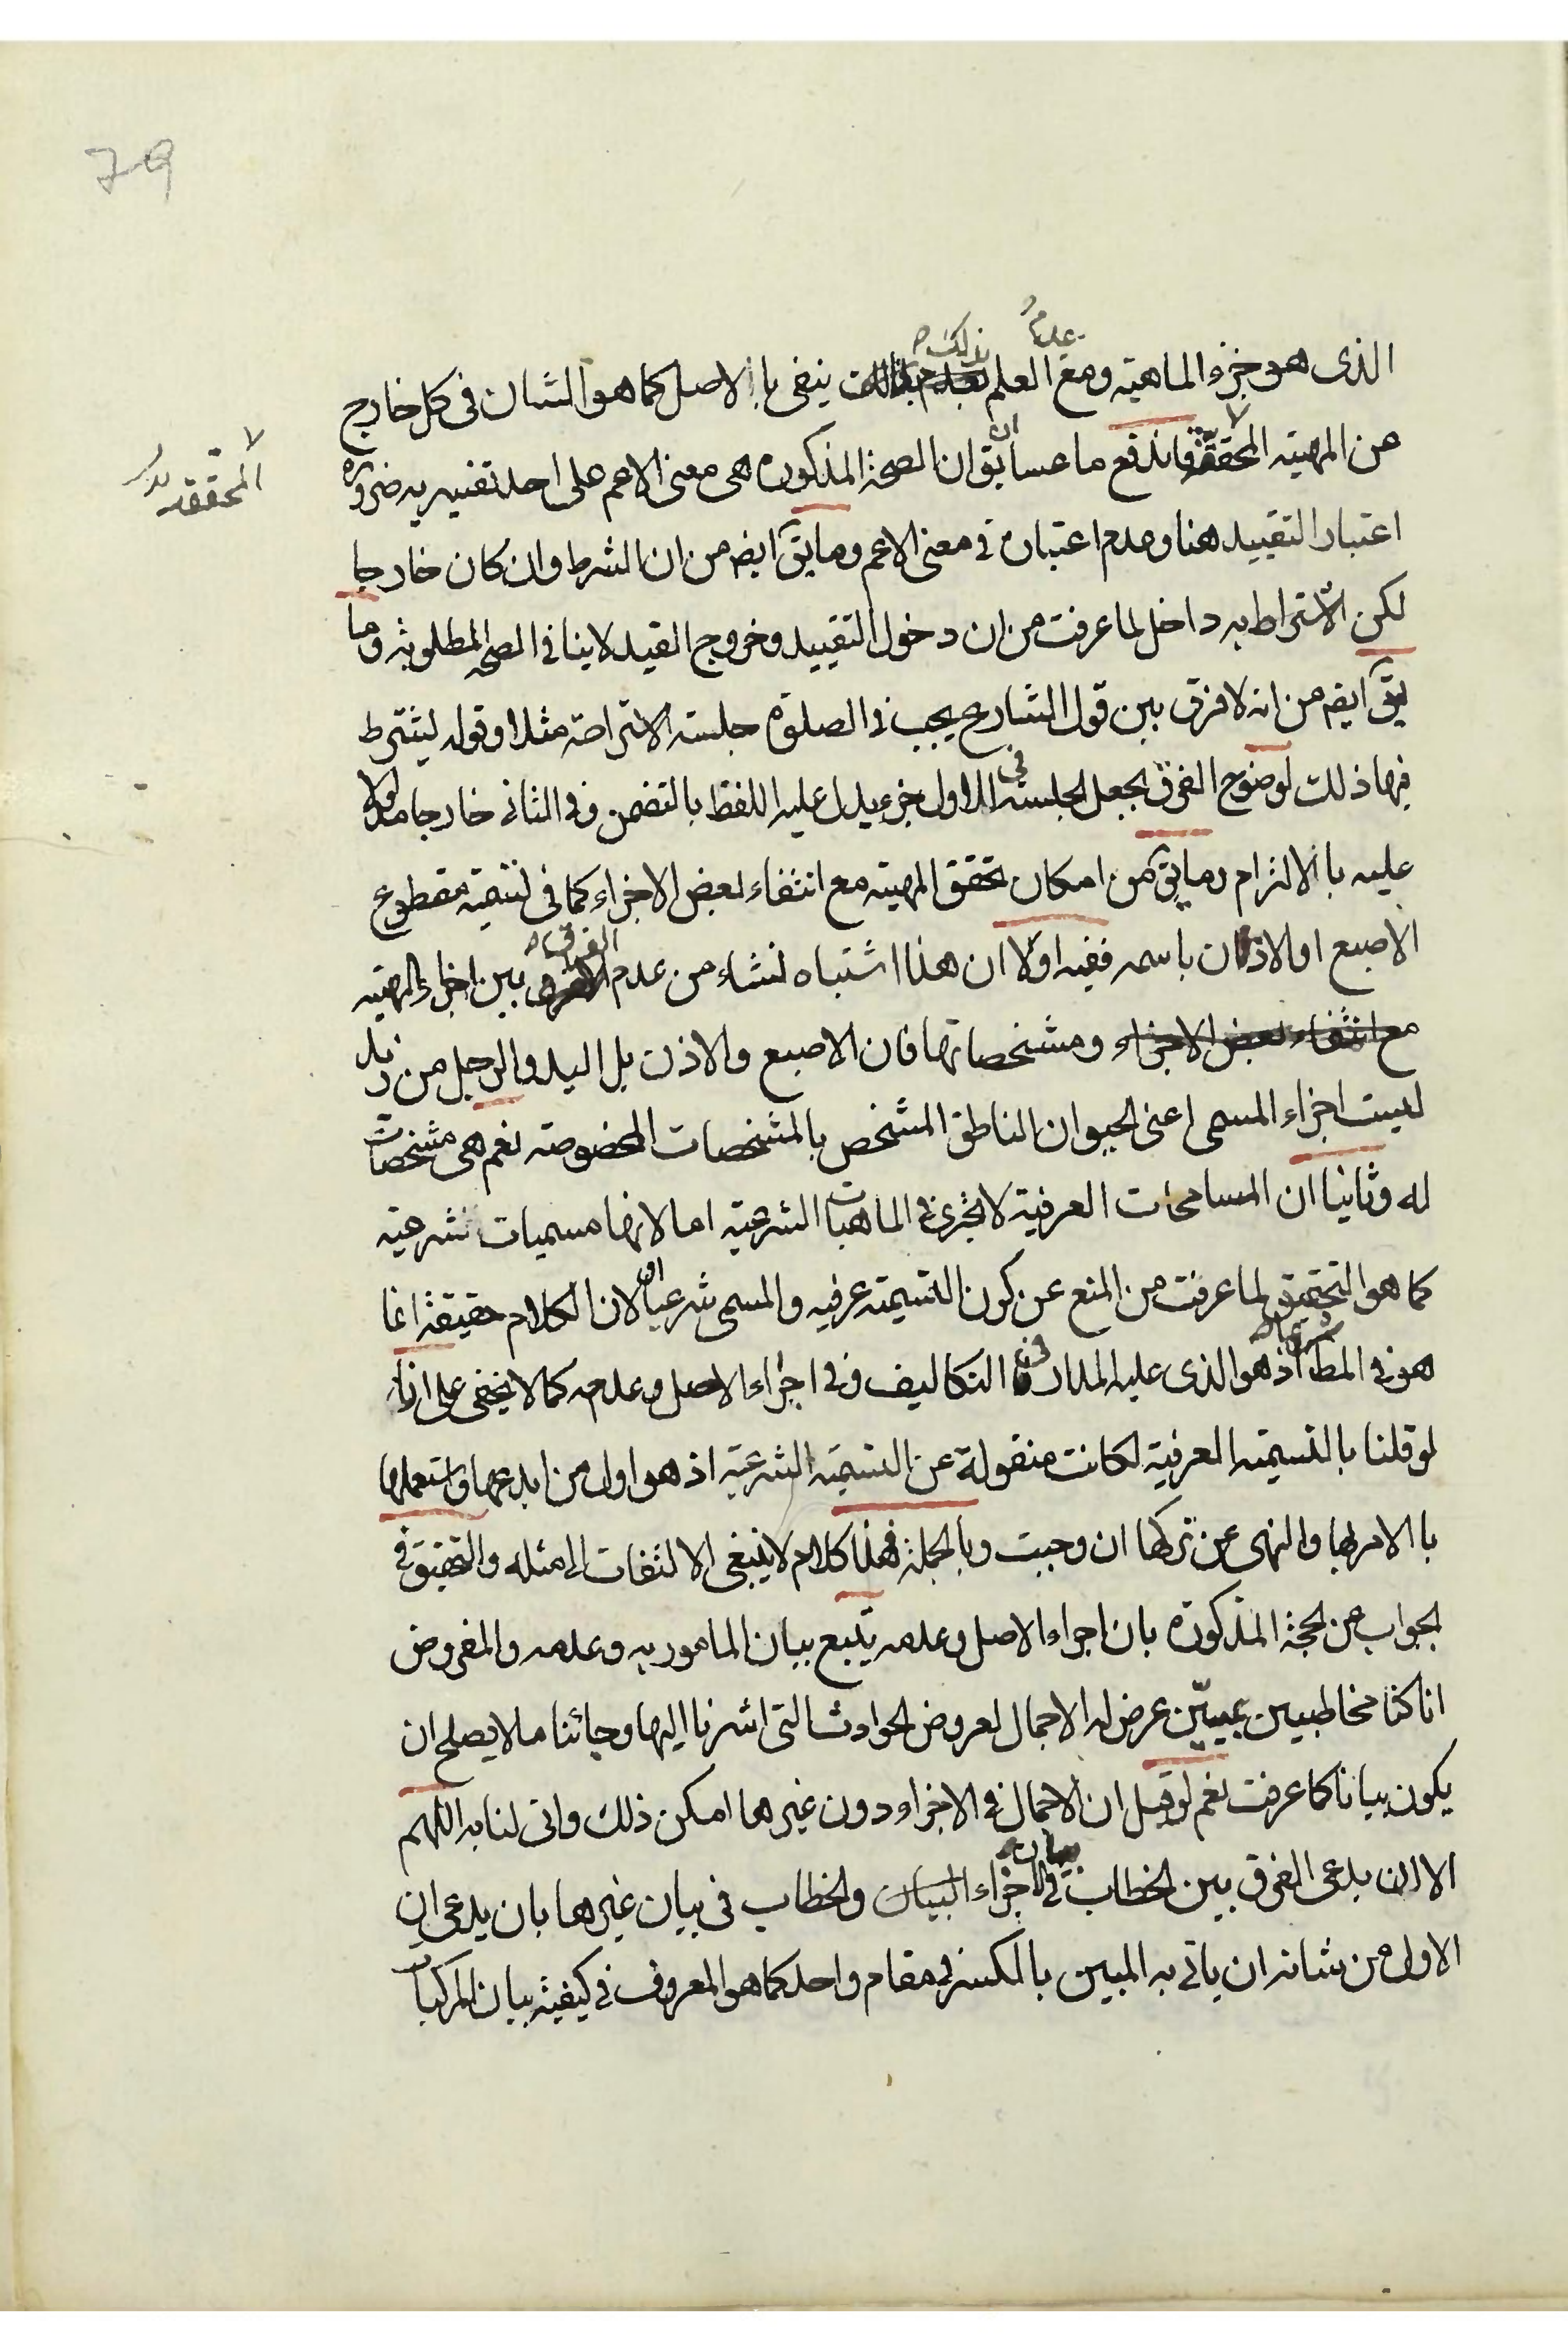 79
الذى هو جزء الماهيته ومع عدم العلم بذلك ينفى باالاصل كما هو الشان فى كل خارج
عن المهيته المحققة فاندفع ما عسا ان يق ان الصحة المذكورة هى معنى الاعم على احد تفسيريه ضرورة
المحققه
اعتبار التقييد هنا وعدم اعتباره فى معنى الاعم وما يق ايضا من ان الشرط وان كان خارجا
لكن الاشتراط به داخل لما عرفت من ان دخول التقييد وخروج القيد لا ينافى الصحه المطلوبة وما
يق ايضا من انه لا فرق بين قول الشارع يجب فى الصلوة جلسته الاستراحة مثلا وقوله يشترط
فيها ذلك لوضوح الفرق بجعل الجلسه فى الاول جزء يدل عليه اللفظ بالتضمن وفى الثانى خارجا مدلولا
عليه باالالتزام وما يق من امكان تحقق المهيته مع انتفاء بعض الاجزاء كما فى تسميته مقطوع
الاصبع او الاذان باسمه ففيه اولا ان هذا اشتباه نشاء من عدم الفرق بين اجزاء المهيته
مع انتفاء بعض الاجزاء ومشخصاتها فان الاصبع والاذن بل اليد والرجل من زيد
ليست اجزاء المسمى اعنى الحيوان الناطق المشخص بالمشخصات المخصوصته نعم هى مشخصات
له وثانيا ان المسامحات العرفية لا تجرى فى الماهيات الشرعيته اما لانها مسميات شرعيته
كما هو التحقيق لما عرفت من المنع عن كون التسميته عرفيه والمسمى شرعيا او لان الكلام حقيقة انما
هو فى المط شرعا اذ هو الذى عليه المدار فى التكاليف وفى اجزاء الاصل وعدمه كما لا يخفى على انا
لو قلنا بالتسميته العرفية لكانت منقولة عن التسميته الشرعيته اذ هو اول من ابدعها واستعملها
باالامر بها والنهى عن تركها ان وجبت وبالجملة فهذا كلام لا ينبغى الالتفات الى مثله والتحقيق فى
الجواب عن الحجة المذكورة بان اجراء الاصل وعدمه يتبع بيان المامور به وعدمه والمفروض
انا كنا مخاطبين بمبيّن عرض له الاجمال لعروض الحوادث التى اشرنا اليها وجائنا ما لا يصلح ان
يكون بيانا كما عرفت نعم لو قيل ان الاجمال فى الاجزاء دون غيرها امكن ذلك وانى لنا به اللهم
الا ان يدعى الفرق بين الخطاب فى بيان الاجزاء البيان والخطاب فى بيان غيرها بان يدعى ان
الاول من شانه ان ياتى به المبين بالكسر فى مقام واحد كما هو المعروف فى كيفية بيان المركبات